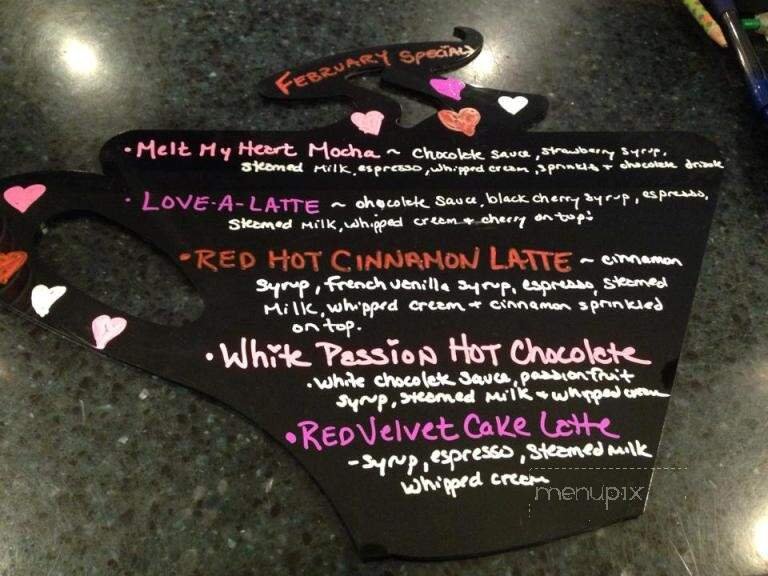 FEBRUARY SPECIALS
• Melt My Heart Mocha ~ Chocolate sauce, strawberry syrup,
steamed Milk, espresso, whipped cream, sprinkles + chocolate drizzle
• LOVE-A-LATTE ~ chocolate sauce, black cherry syrup, espresso,
steamed Milk, whipped cream + cherry on top!
• RED HOT CINNAMON LATTE ~ cinnamon
syrup, French vanilla syrup, espresso, steamed
Milk, whipped cream + cinnamon sprinkled
on top.
• White Passion Hot Chocolate
• White chocolate sauce, passionfruit
syrup, steamed Milk + whipped cream
• RED Velvet Cake Latte
- syrup, espresso, steamed milk
whipped cream
menupix